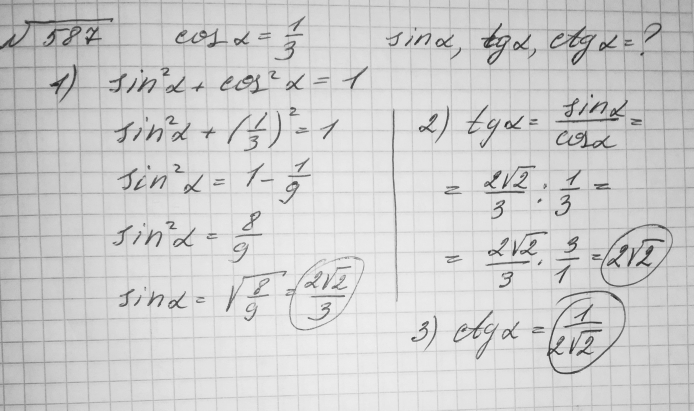 № 587 cos α = 1/3 sin α, tg α, ctg α = ?
1) sin²α + cos²α = 1
sin²α + (1/3)² = 1
sin²α = 1 - 1/9
sin²α = 8/9
sin α = √(8/9) = 2√2/3
2) tg α = sin α/cos α =
= 2√2/3 : 1/3 =
= 2√2/3 · 3/1 = 2√2
3) ctg α = 1/2√2